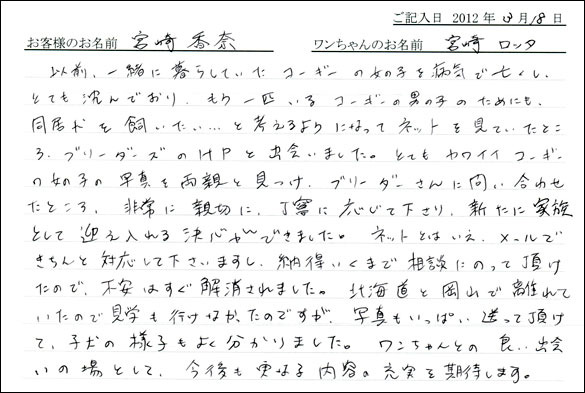 ご記入日 2012年 3月18日
お客様のお名前 宮崎 香奈 ワンちゃんのお名前 宮崎 ロッタ
以前、一緒に暮らしていたコーギーの女の子を病気で亡くし、
とても沈んでおり、もう一匹いるコーギーの男の子のためにも、
同居犬を飼いたい…と考えるようになってネットを見ていたとこ
ろ、ブリーダーズのHPと出会いました。とてもカワイイコーギー
の女の子の写真を両親と見つけ、ブリーダーさんに問い合わせ
たところ、非常に親切に、丁寧に応じて下さり、新たに家族
として迎え入れる決心ができました。ネットとはいえ、メールで
きちんと対応して下さいますし、納得いくまで相談にのって頂け
たので、不安はすぐ解消されました。北海道と岡山で離れて
いたので見学も行けなかったのですが、写真もいっぱい送って頂け
て、子犬の様子もよく分かりました。ワンちゃんとの良い出会
いの場として、今後も更なる内容の充実を期待します。